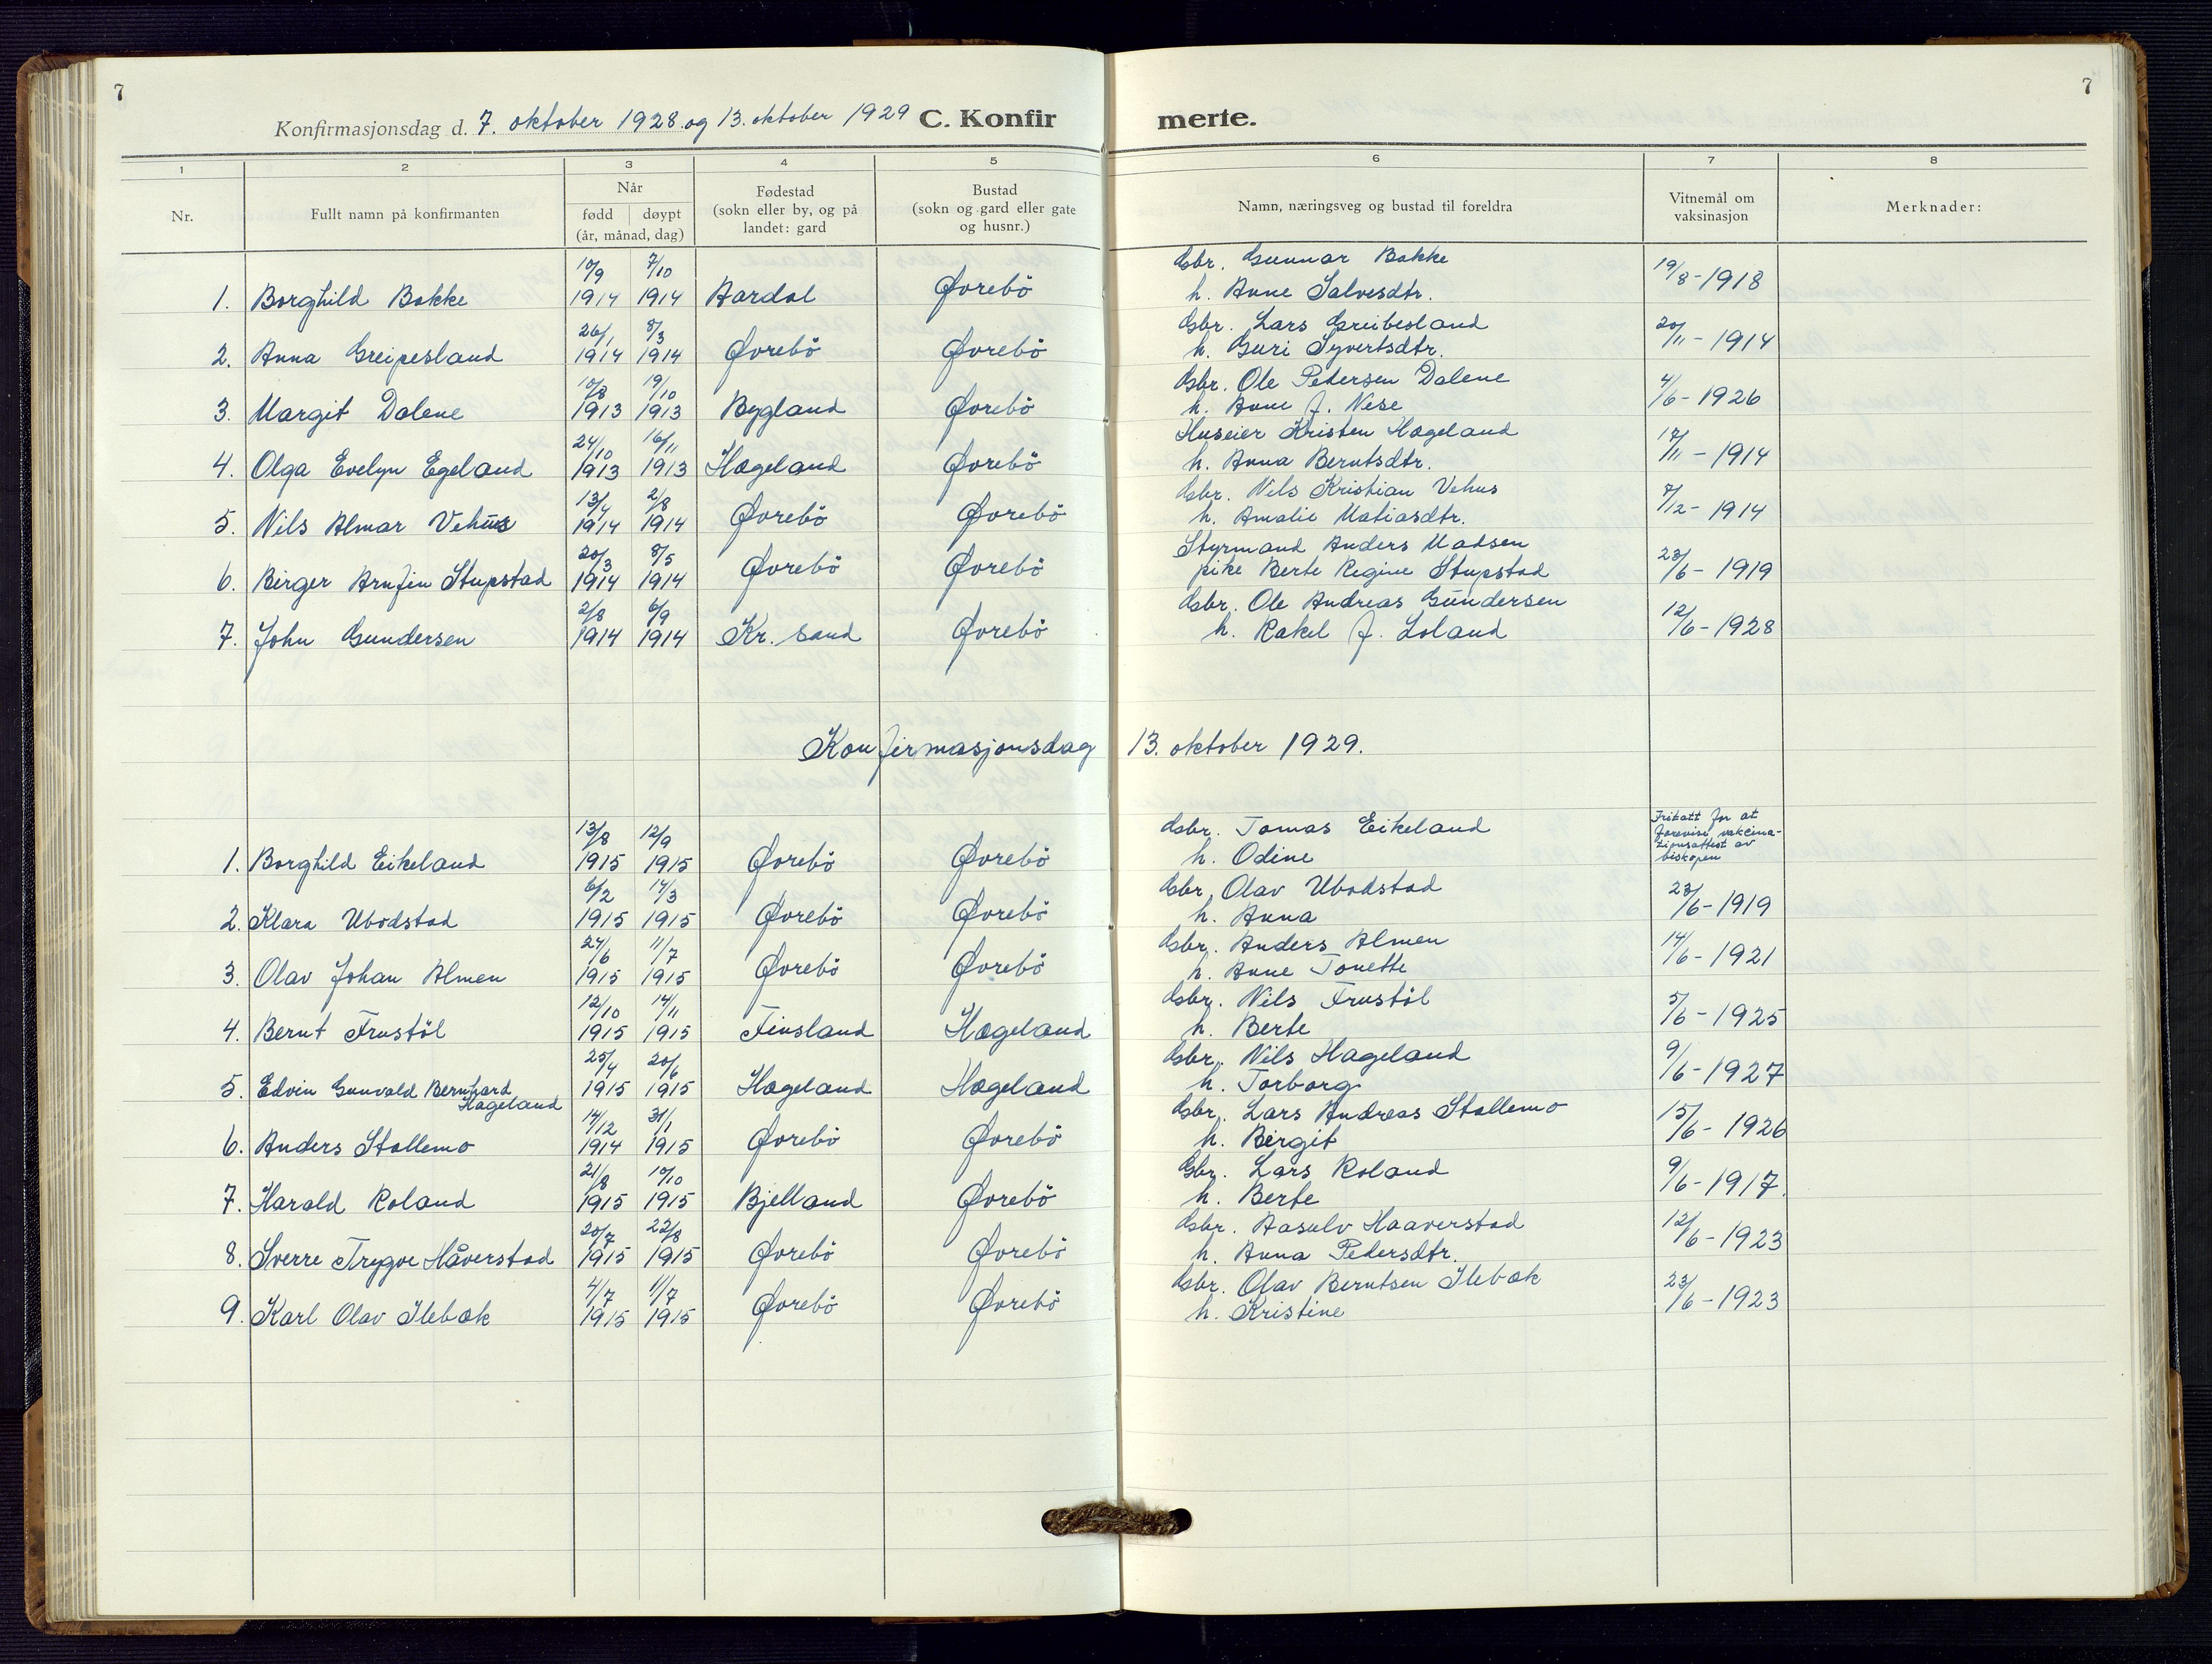 7
7
Konfirmasjonsdag d. 7. oktober 1928 og 13. oktober 1929 C. Konfir merte.
1 2 3 4 5 6 7 8
Nr.
Fullt namn på konfirmanten
Når
fødd døypt
(år, månad, dag)
Fødestad
(sokn eller by, og på
landet: gard
Bustad
(sokn og gard eller gate
og husnr.)
Namn, næringsveg og bustad til foreldra
Vitnemål om
vaksinasjon
Merknader:
10/9 7/10 Gbr. Gunnar Bakke
1. Borghild Bakke 1914 1914 Aardal Øvrebö h. Anne Salvesdtr. 19/8-1918
26/1 8/3 Gbr. Lars Greibesland
2. Anna Greipesland 1914 1914 Øvrebö Øvrebö h. Guri Syvertsdtr. 20/11-1914
10/8 19/10 Gbr. Ole Petersen Dalene
3. Margit Dalene 1913 1913 Bygland Øvrebö h. Anne J. Nese 4/6-1926
24/10 16/11 Huseier Kristen Hægeland
4. Olga Evelyn Egeland 1913 1913 Hægeland Øvrebö h. Anna Berntsdtr. 17/11-1914
13/4 2/8 Gbr. Nils Kristian Vehus
5. Nils Almar Vehus 1914 1914 Øvrebö Øvrebö h. Amalie Matiasdtr. 7/12-1914
20/3 8/5 Styrmand Anders Madsen
6. Birger Arnfin Stupstad 1914 1914 Øvrebö Øvrebö pike Berte Regine Stupstad 23/6-1919
2/8 6/9 Gbr. Ole Andreas Gundersen
7. John Gundersen 1914 1914 Kr. sand Øvrebö h. Rakel J. Loland 12/6-1928
Konfirmasjonsdag 13. oktober 1929.
13/8 12/9 Gbr. Tomas Eikeland
1. Borghild Eikeland 1915 1915 Øvrebö Øvrebö h. Odine
Fritatt for at
forevise vakcina-
tionsattest av
biskopen
6/2 14/3 Gbr. Olav Ubodstad
2. Klara Ubodstad 1915 1915 Øvrebö Øvrebö h. Anna 23/6-1919
24/6 11/7 Gbr. Anders Almen
3. Olav Johan Almen 1915 1915 Øvrebö Øvrebö h. Anne Tonette 14/6-1921
12/10 14/11 Gbr. Nils Frustöl
4. Bernt Frustöl 1915 1915 Finsland Hægeland h. Berte 5/6-1925
25/4 20/6 Gbr. Nils Hageland
5. Edvin Gunvald Bernhard 1915 1915 Hægeland Hægeland h. Torborg 9/6-1927
Hageland
14/12 31/1 Gbr. Lars Andreas Stallemo
6. Anders Stallemo 1914 1915 Øvrebö Øvrebö h. Birgit 15/6-1926
21/8 10/10 Gbr. Lars Roland
7. Harald Roland 1915 1915 Bjelland Øvrebö h. Berte 9/6-1917.
20/7 22/8 Gbr. Aasulv Haaverstad
8. Sverre Trygve Håverstad 1915 1915 Øvrebö Øvrebö h. Anna Pedersdtr. 12/6-1923
4/7 11/7 Gbr. Olav Berntsen Ilebæk
9. Karl Olav Ilebæk 1915 1915 Øvrebö Øvrebö h. Kristine 23/6-1923